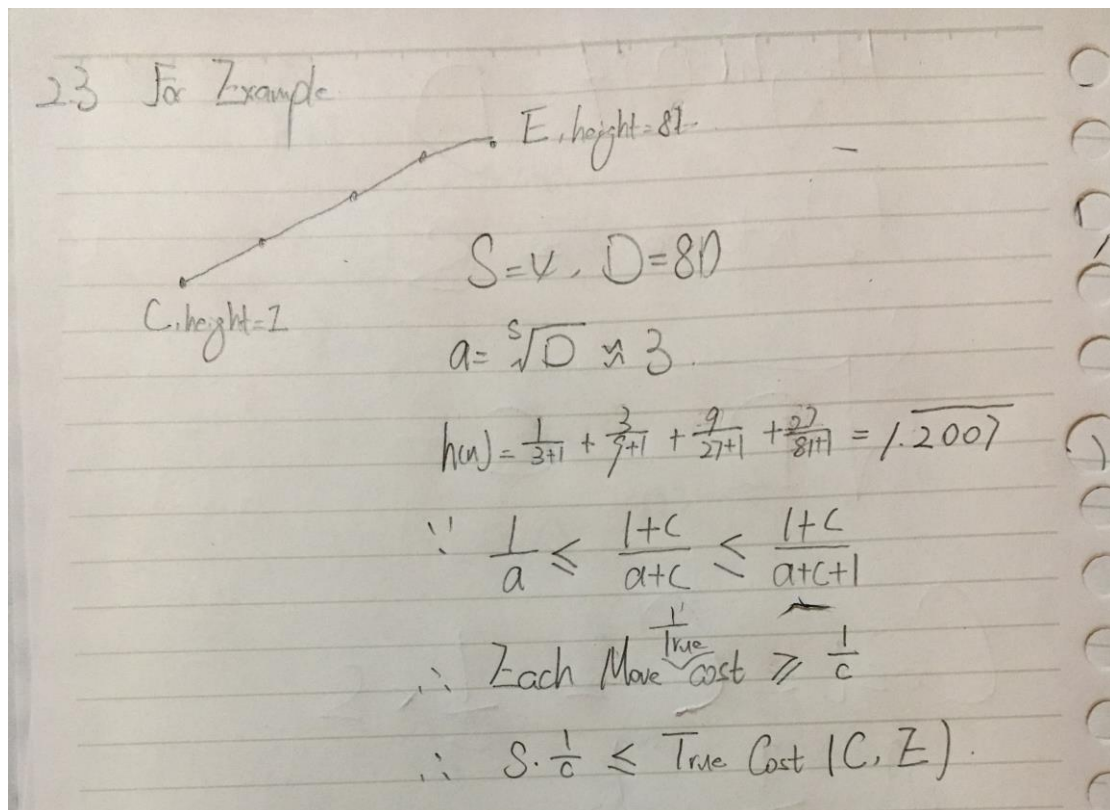 2.3 For Example
E, height=81.
C, height=1
S=4, D=80
a= ˢ√D ≈ 3.
h(n) = 1/(3+1) + 3/(9+1) + 9/(27+1) + 27/(81+1) = 1.2007
∵ 1/a ≤ (1+C)/(a+C) ≤ (1+C)/(a+C+1)
∴ Each Move True cost ≥ 1/c
∴ S·1/c ≤ True Cost (C, E).